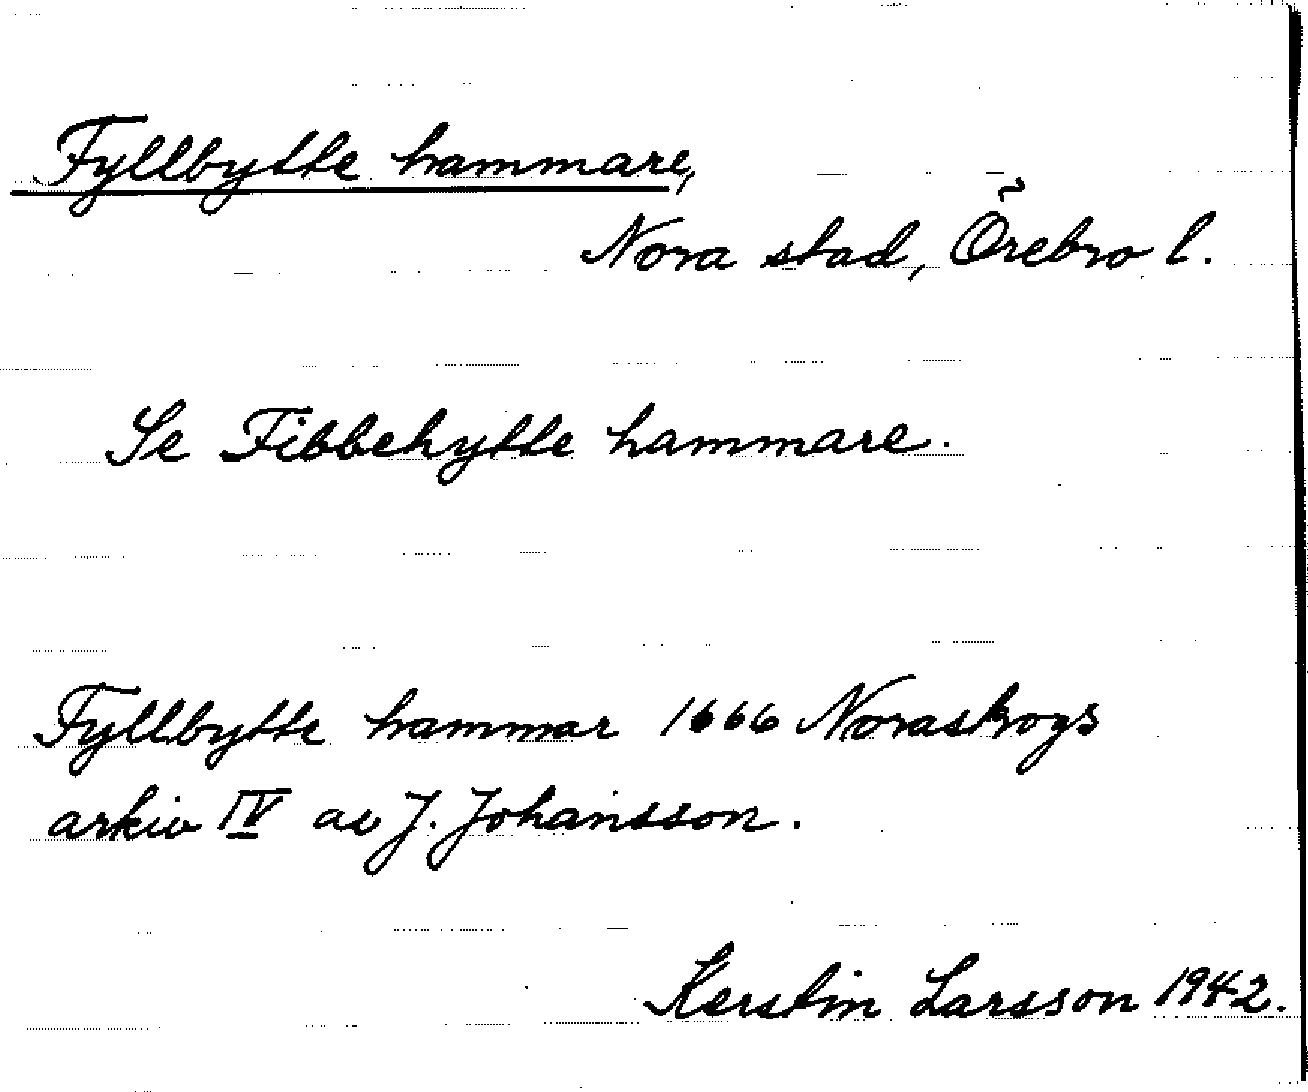 Fyllbytte hammare,
Nora stad, Örebro l.
Se Fibbehytte hammare.
Fyllbytte hammar 1666 Noraskogs
arkiv IV av J. Johansson.
Kerstin Larsson 1942.